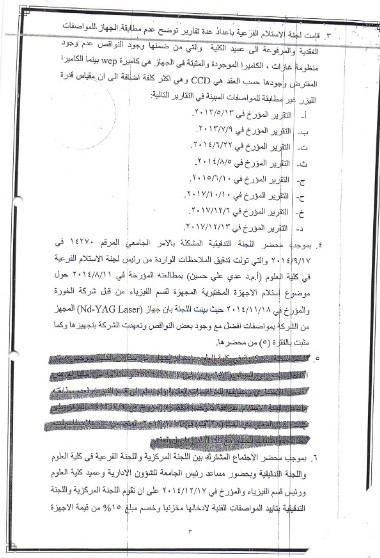 ٣. قامت لجنة الاستلام الفرعية باعداد عدة تقارير توضح عدم مطابقة الجهاز للمواصفات
العقدية والمرفوعة الى عميد الكلية والتي من ضمنها وجود النواقص عدم وجود
منظومة غازات ، الكاميرا الموجودة والمثبتة في الجهاز هي كاميرة wep بينما الكاميرا
المفترض وجودها حسب العقد هي CCD وهي اكثر كلفة اضافة الى ان مقياس قدرة
الليزر غير مطابقة للمواصفات المبينة في التقارير التالية:
أ- التقرير المؤرخ في ٢٠١٣/٥/١٣.
ب- التقرير المؤرخ في ٢٠١٣/٧/٩.
ت- التقرير المؤرخ في ٢٠١٤/٦/٢٢.
ث- التقرير المؤرخ في ٢٠١٤/٨/٥.
ج- التقرير المؤرخ في ٢٠١٥/٦/١٠.
ح- التقرير المؤرخ في ٢٠١٧/١٠/١٠.
خ- التقرير المؤرخ في ٢٠١٧/١٢/٦.
د- التقرير المؤرخ في ٢٠١٧/١٢/١٣.
٤. بموجب محضر اللجنة التدقيقية المشكلة بالامر الجامعي المرقم ١٤٢٧٠ في
٢٠١٤/٩/١٧ والتي تولت تدقيق الملاحظات الواردة من رئيس لجنة الاستلام الفرعية
في كلية العلوم (أ.م.د عدي علي حسين) بمطالعته المؤرخة في ٢٠١٤/٨/١١ حول
موضوع إستلام الاجهزة المختبرية المجهزة لقسم الفيزياء من قبل شركة الخورة
والمؤرخ في ٢٠١٤/١١/١٨ حيث بينت اللجنة بان جهاز (Nd-YAG Laser) المجهز
من الشركة بمواصفات افضل مع وجود بعض النواقص وتعهدت الشركة بتجهيزها وكما
مثبت بالفقرة (٥) من محضرها.
٥.
٦. بموجب محضر الاجتماع المشترك بين اللجنة المركزية واللجنة الفرعية في كلية العلوم
واللجنة التدقيقية وبحضور مساعد رئيس الجامعة للشؤون الادارية وعميد كلية العلوم
ورئيس قسم الفيزياء والمؤرخ في ٢٠١٤/١٢/١٧ على ان تقوم اللجنة المركزية واللجنة
التدقيقية بتاييد المواصفات الفنية لادخالها مخزنيا وخصم مبلغ ١٥% من قيمة الاجهزة
٣